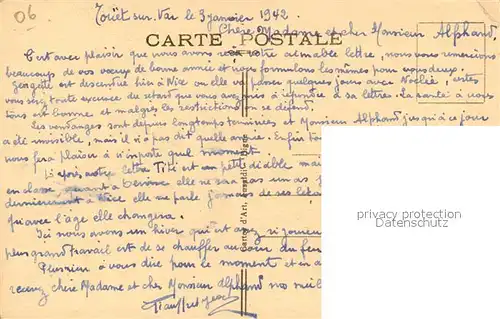 06
Touët-sur-Var le 3 janvier 1942
Chère Madame et cher Monsieur Alphand,
CARTE POSTALE
C'est avec plaisir que nous avons reçu votre aimable lettre, nous vous remercions
beaucoup de vos vœux de bonne année et nous formulons les mêmes pour vous deux.
Georgette est descendue hier à Nice où elle passe quelques jours avec
vous tout excuse du retard que nous avons pris à répondre à sa lettre. La santé à nous
tous est bonne et malgré les restrictions on se défend.
Les vendanges sont depuis longtemps terminées et Monsieur Alphand jusqu'à ce jour
a été invisible, mais il n'a pas dit quelle année. Enfin
nous fera plaisir à n'importe quel moment.
D'après votre lettre Titi est un petit diable
en classe, quant à elle ne sera pas un as
dernièrement à Nice elle me parle jamais de ses
qu'avec l'âge elle changera.
Ici nous avons un hiver qui est assez
plus grand travail est de se chauffer au coin du feu
Plus rien à vous dire pour le moment et
recevez chère Madame et cher Monsieur Alphand nos
Cartes d'Art, Rostaldi, Digne
privacy protection
www.delcampe.net